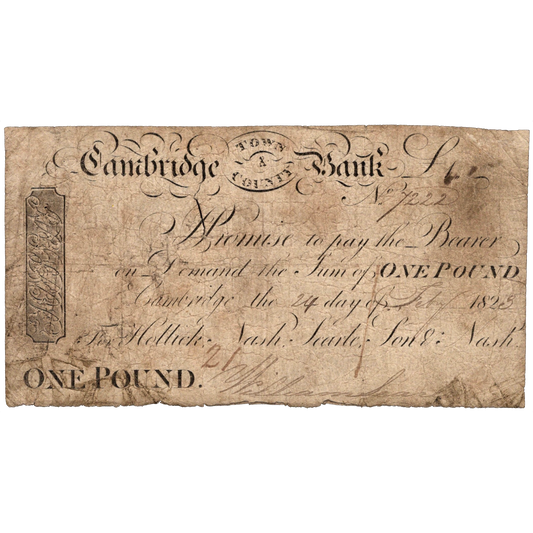 Cambridge TOWN & COUNTY Bank £
No. 7222
I Promise to pay the Bearer
on Demand the Sum of ONE POUND
Cambridge the 24 day of Feby 1823
For Hollick, Nash, Searle, Son & Nash
21
ONE POUND.